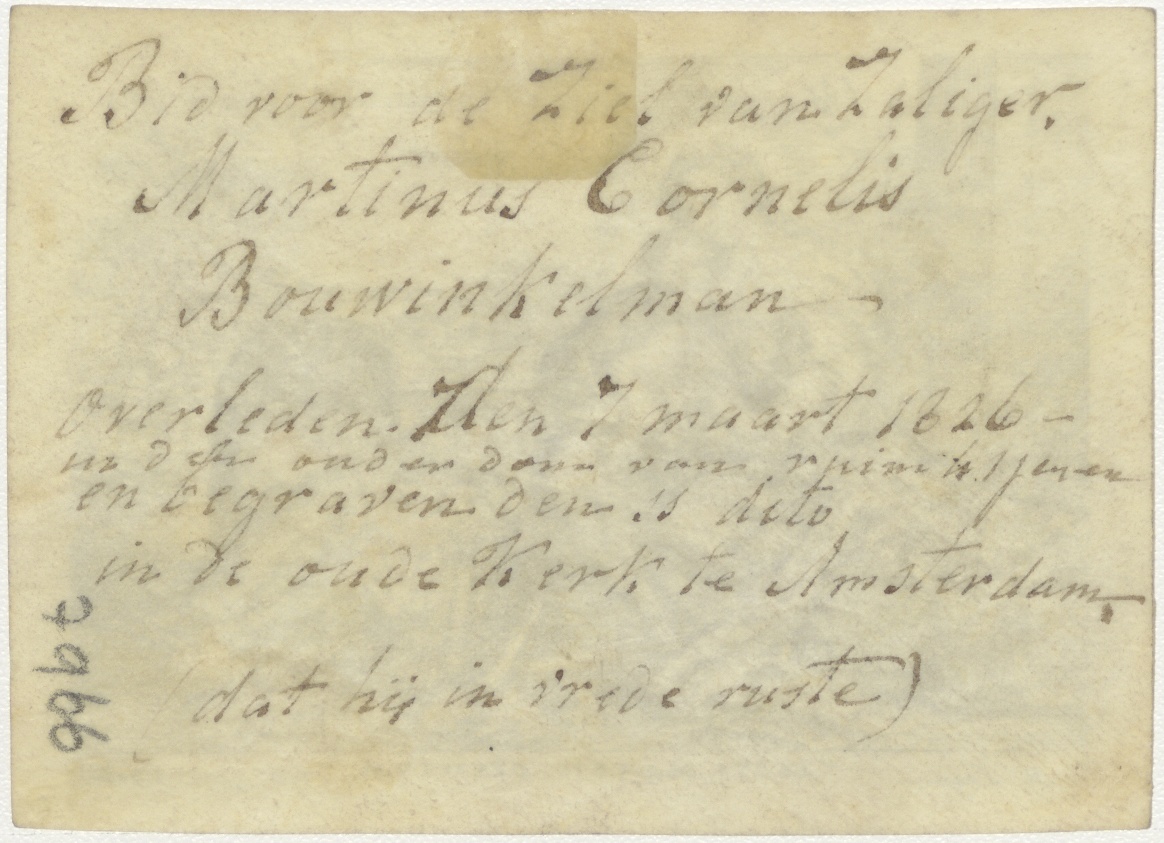 Bid voor de Ziel van Zaliger.
Martinus Cornelis
Bouwinkelman
Overleden. Den 7 maart 1826 -
in den ouderdom van ruim
en begraven den 11 dito
in de oude Kerk te Amsterdam.
(dat hij in vrede ruste)
7966